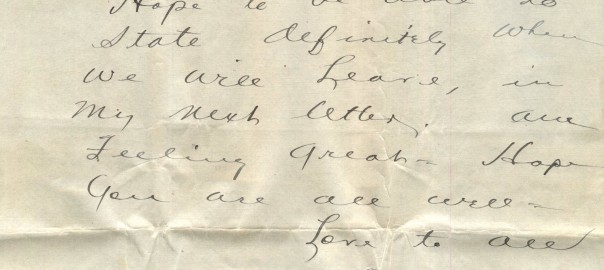 Hope to be able to
State definitely when
we will Leave, in
My next letter. am
Feeling Great - Hope
You are all well -
Love to all